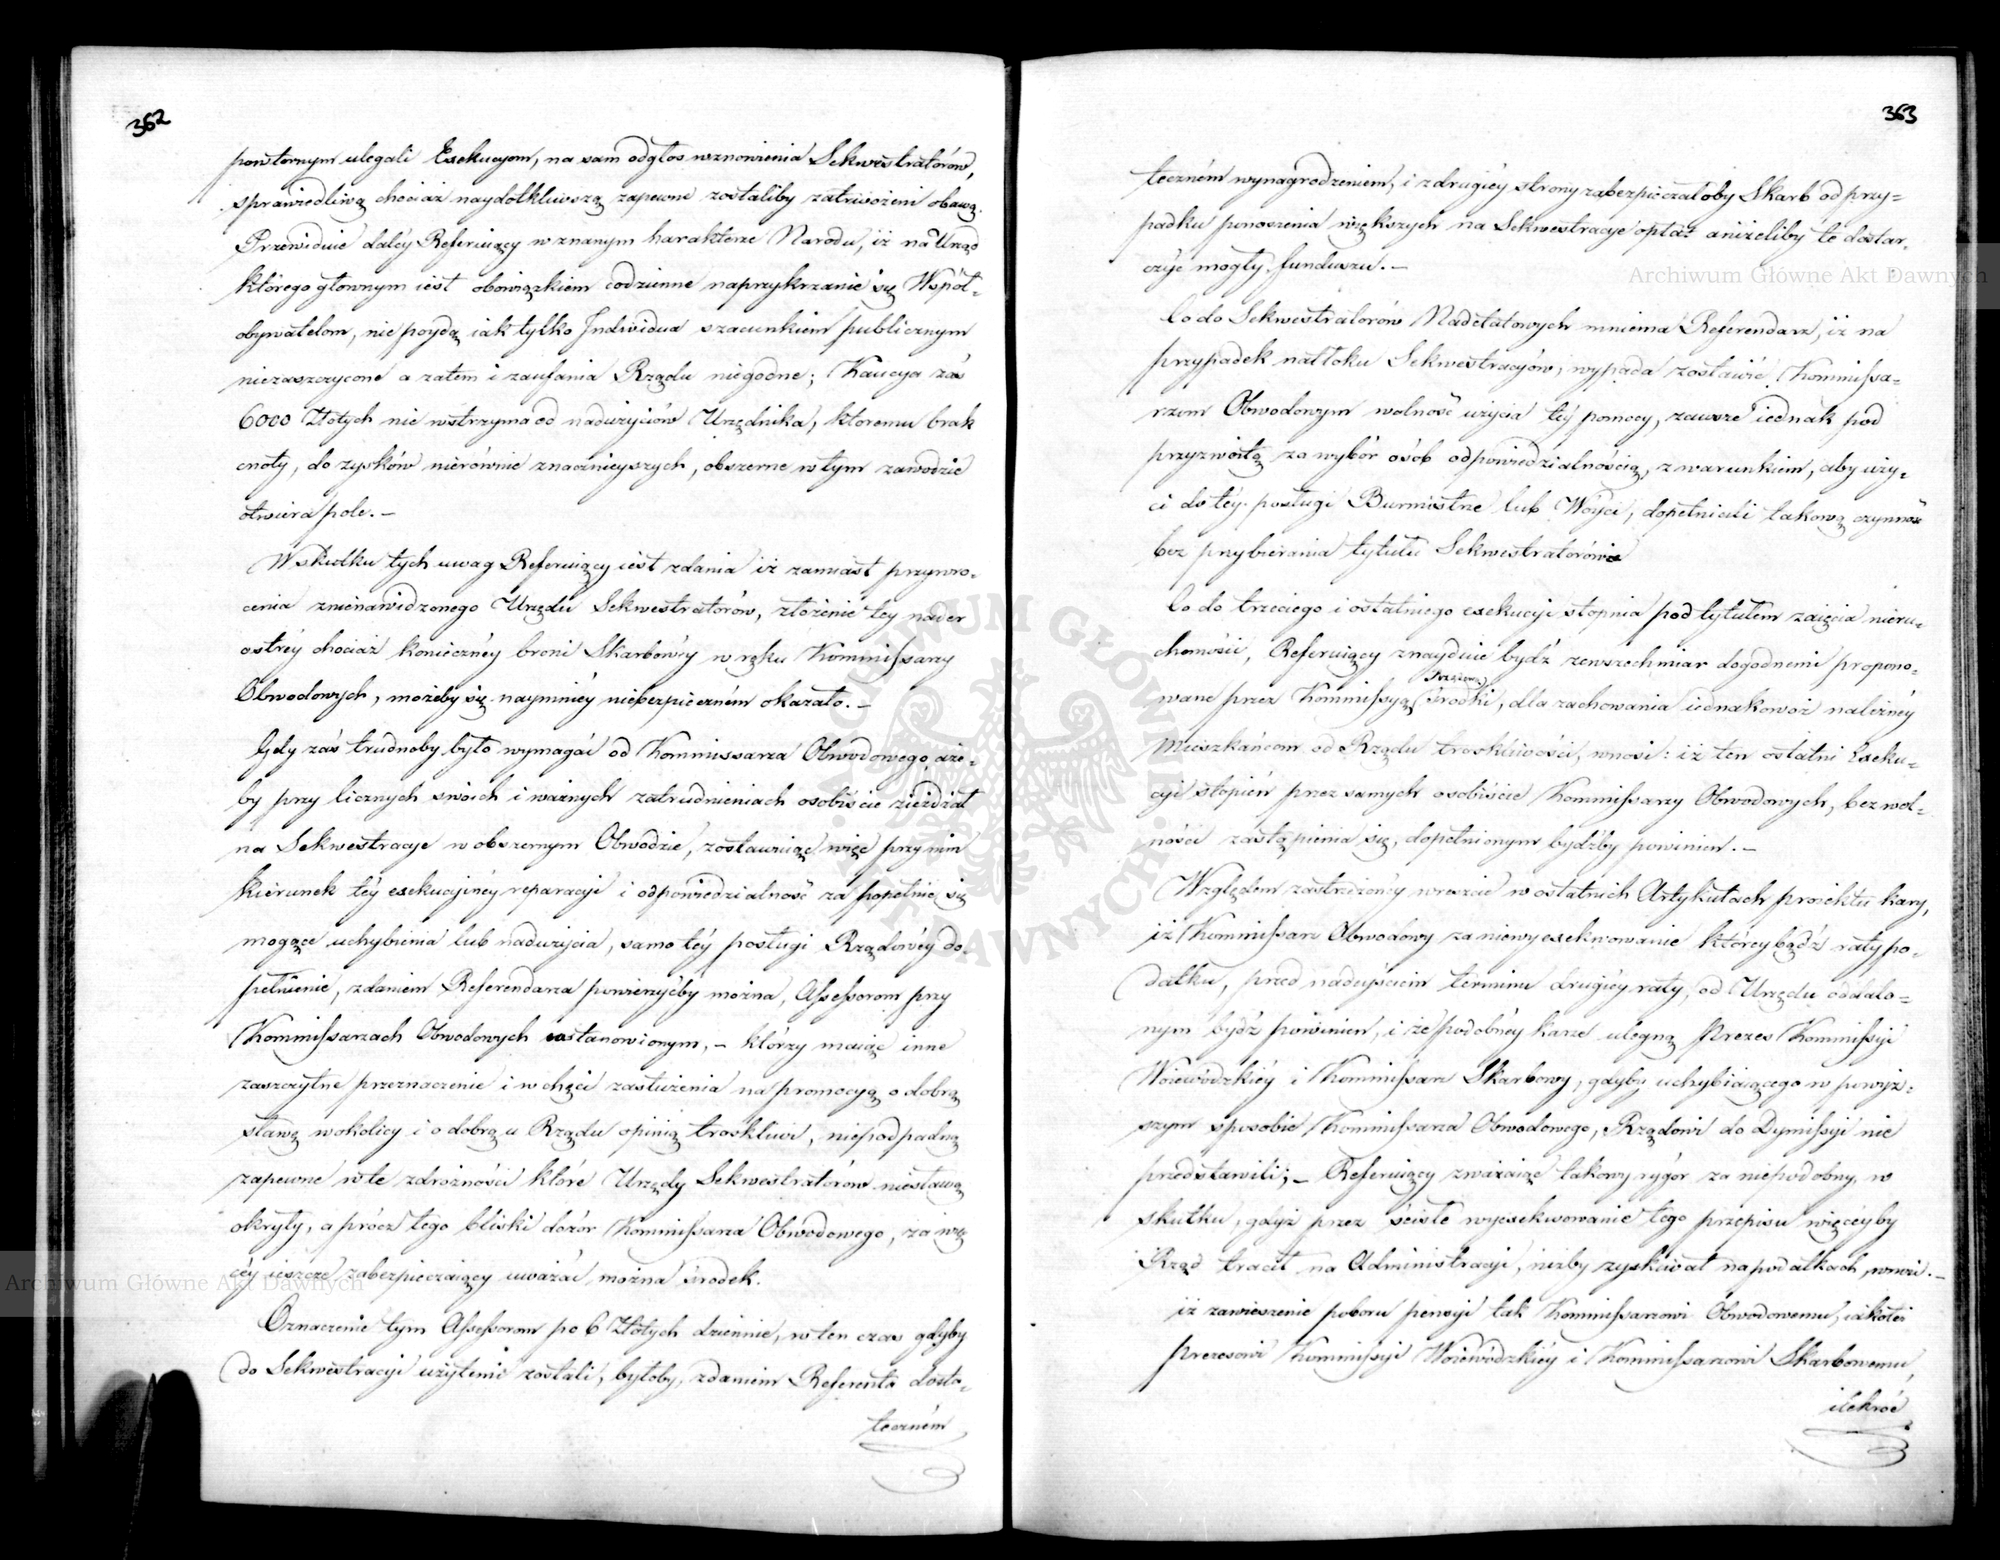 362
powtornym ulegali Exekucyom, na sam odgłos wznowienia Sekwestratorów,
sprawiedliwą chociaż naydotkliwszą zapewne zostaliby zatrwożeni obawą.
Przewiduie daléy Referuiący w znanym harakterze Narodu, iż na Urząd
którego głownym iest obowiązkiem codzienne naprzykrzanie się Współ-
obywatelom, nie poydą iak tylko Indwidua szacunkiem publicznym
niezaszczycone a zatem i zaufania Rządu niegodne; Kaucya zaś
6000 Złotych nie wstrzyma od nadużyciów Urzędnika, któremu brak
cnoty, do zysków nierównie znacznieyszych, obszerne w tym zawodzie
otwiera pole. –
W skutku tych uwag Referuiący iest zdania iż zamiast przywro-
cenia znienawidzonego Urzędu Sekwestratorów, złożenie tey nader
ostréy chociaż koniecznéy broni Skarbowéy w ręku Kommissarzy
Obwodowych, możeby się naymniéy niebezpieczném okazało. –
Gdy zaś trudnoby było wymagać od Kommissarza Obwodowego, aże-
by przy licznych swoich i ważnych zatrudnieniach osobiście zieżdżał
na Sekwestracye w obszernym Obwodzie, zostawuiąc więc przy nim
kierunek téy exekucyinéy reparacyi i odpowiedzialność za popełnić się
mogące uchybienia lub nadużycia, samo téy posługi Rządowéy do-
pełnienie, zdaniem Referendarza powierzyćby można, Assessorom przy
Kommissarzach Obwodowych ustanowionym, – którzy maiąc inne
zaszczytne przeznaczenie i w chęci zasłużenia na promocyą o dobrą
sławę w okolicy i o dobrą u Rządu opinią troskliwi, niepodpadną
zapewne w te zdrożności które Urzędy Sekwestratorów niesławą
okryły, a prócz tego bliski dozór Kommissarza Obwodowego, za wię
céy ieszcze zabezpieczaiący uważać można srodek.
Oznaczenie tym Assessorom po 6 Złotych dziennie, w ten czas gdyby
do Sekwestracyi użytemi zostali, byłoby, zdaniem Referenta dosta-
teczném
363
teczném wynagrodzeniem, i z drugiéy strony zabezpieczałoby Skarb od przy-
padku ponoszenia większych na Sekwestracye opłat aniżeliby te dostar-
czyć mogły, funduszu. –
Co do Sekwestratorów Nadetatowych mniema Referendarz, iż na
przypadek natłoku Sekwestracyów, wypada zostawić Kommissa-
rzom Obwodowym wolność użycia téy pomocy, zawsze iednak pod
przyzwoitą za wybór osób odpowiedzialnością, z warunkiem, aby uży-
ci do téy posługi Burmistrze lub Wóyci, dopełniali takową czynność
bez przybierania tytułu Sekwestratorów
Co do trzeciego i ostatniego exekucyi stopnia pod tytułem zaięcia nieru-
chomości, Referuiący znayduie bydź zewszechmiar dogodnemi propono-
wane przez Kommissyą Rządową środki, dla zachowania iednakowoż należnéy
Mieszkańcom od Rządu troskliwości, wnosi: iż ten ostatni Exeku-
cyi stopień przez samych osobiście Kommissarzy Obwodowych, bez wol-
ności zastąpienia się, dopełnionym bydźby powinien. –
Względem zastrzeżonéy wreszcie w ostatnich Artykułach proiektu kary,
iż Kommissarz Obwodowy za niewyexekwowanie któreybądź raty po-
datku, przed nadeyściem terminu drugiéy raty, od Urzędu oddalo-
nym bydź powinien, i że podobnéy karze ulegną Prezes Kommissyi
Woiewódzkiéy i Kommissarz Skarbowy, gdyby uchybiaiącego w powyż-
szym sposobie Kommissarza Obwodowego, Rządowi do Dymissyi nie
przedstawili; – Referuiący zważaiąc takowy rygór za niepodobny w
skutku, gdyż przez ścisłe wyexekwowanie tego przepisu więcéyby
Rząd tracił na Administracyi, niżby zyskiwał na podatkach, wnosi. –
iż zawieszenie poboru pensyi tak Kommissarzowi Obwodowemu, iakoteż
Prezesowi Kommissyi Woiewódzkiéy i Kommissarzowi Skarbowemu,
ilekroć